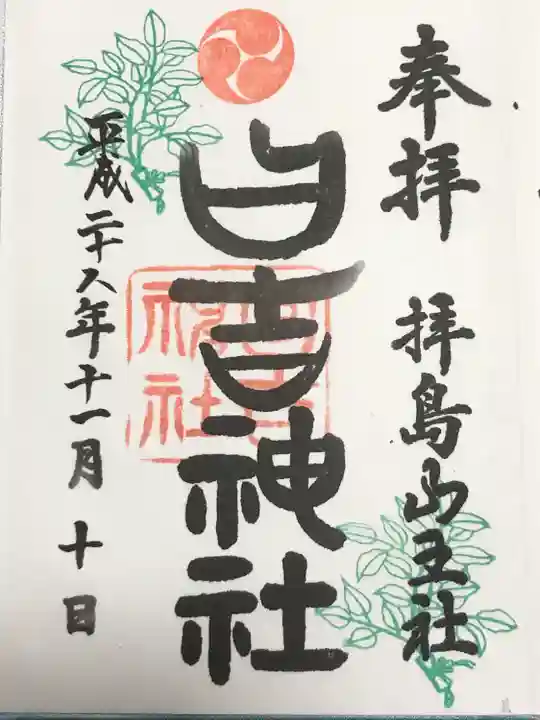 奉拝 拝島山王社
日吉神社
平成二十八年十一月十日
日吉神社